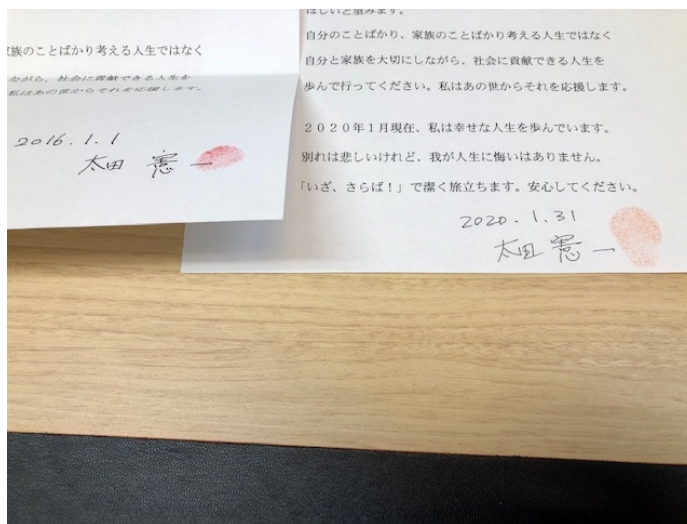 家族のことばかり考える人生ではなく
ながら、社会に貢献できる人生を
私はあの世からそれを応援します。
2016.1.1
太田 憲一
ほしいと望みます。
自分のことばかり、家族のことばかり考える人生ではなく
自分と家族を大切にしながら、社会に貢献できる人生を
歩んで行ってください。私はあの世からそれを応援します。
2020年1月現在、私は幸せな人生を歩んでいます。
別れは悲しいけれど、我が人生に悔いはありません。
「いざ、さらば！」で潔く旅立ちます。安心してください。
2020.1.31
太田 憲一